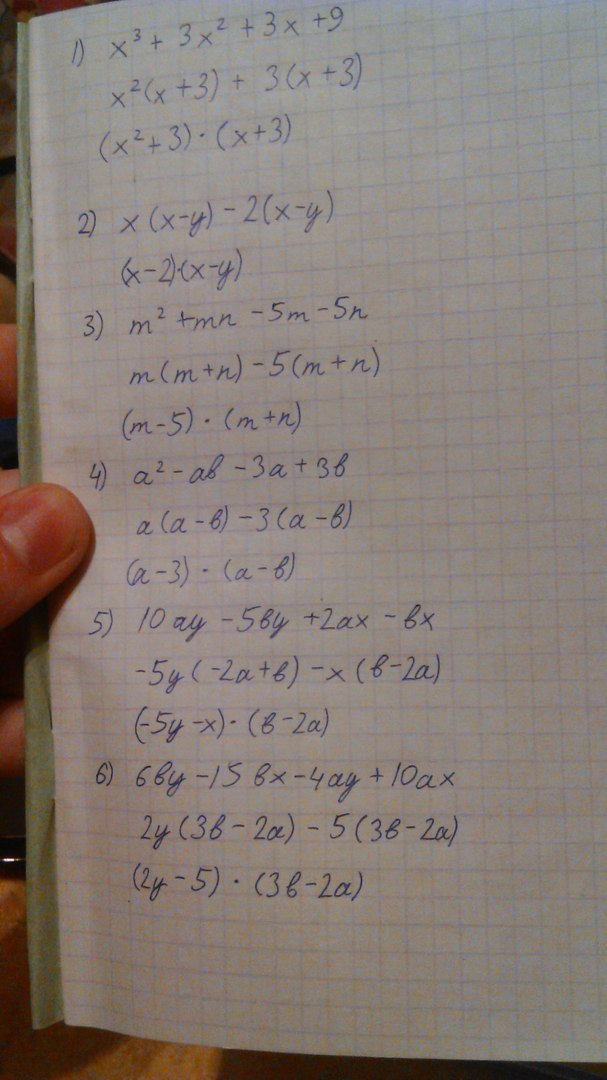 1) x³ + 3x² + 3x + 9
x²(x + 3) + 3(x + 3)
(x² + 3) · (x + 3)
2) x(x - y) - 2(x - y)
(x - 2)·(x - y)
3) m² + mn - 5m - 5n
m(m + n) - 5(m + n)
(m - 5) · (m + n)
4) a² - aв - 3a + 3в
a(a - в) - 3(a - в)
(a - 3) · (a - в)
5) 10ay - 5вy + 2ax - вx
-5y(-2a + в) - x(в - 2a)
(-5y - x) · (в - 2a)
6) 6вy - 15вx - 4ay + 10ax
2y(3в - 2a) - 5(3в - 2a)
(2y - 5) · (3в - 2a)